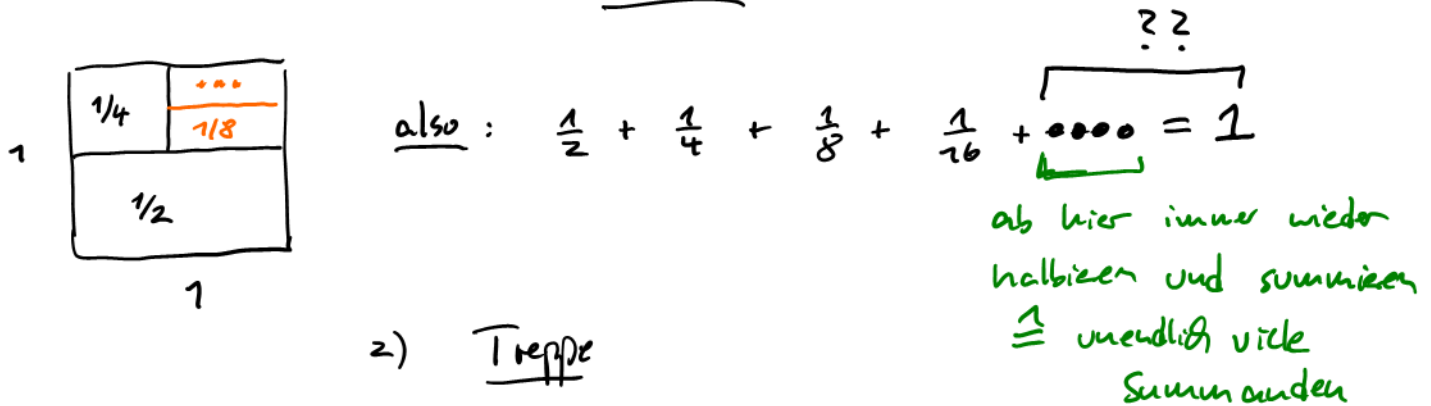 ??
1/4 ...
1/8
1
1/2
1
also : 1/2 + 1/4 + 1/8 + 1/16 + .... = 1
ab hier immer wieder
halbieren und summieren
≙ unendlich viele
Summanden
2) Treppe